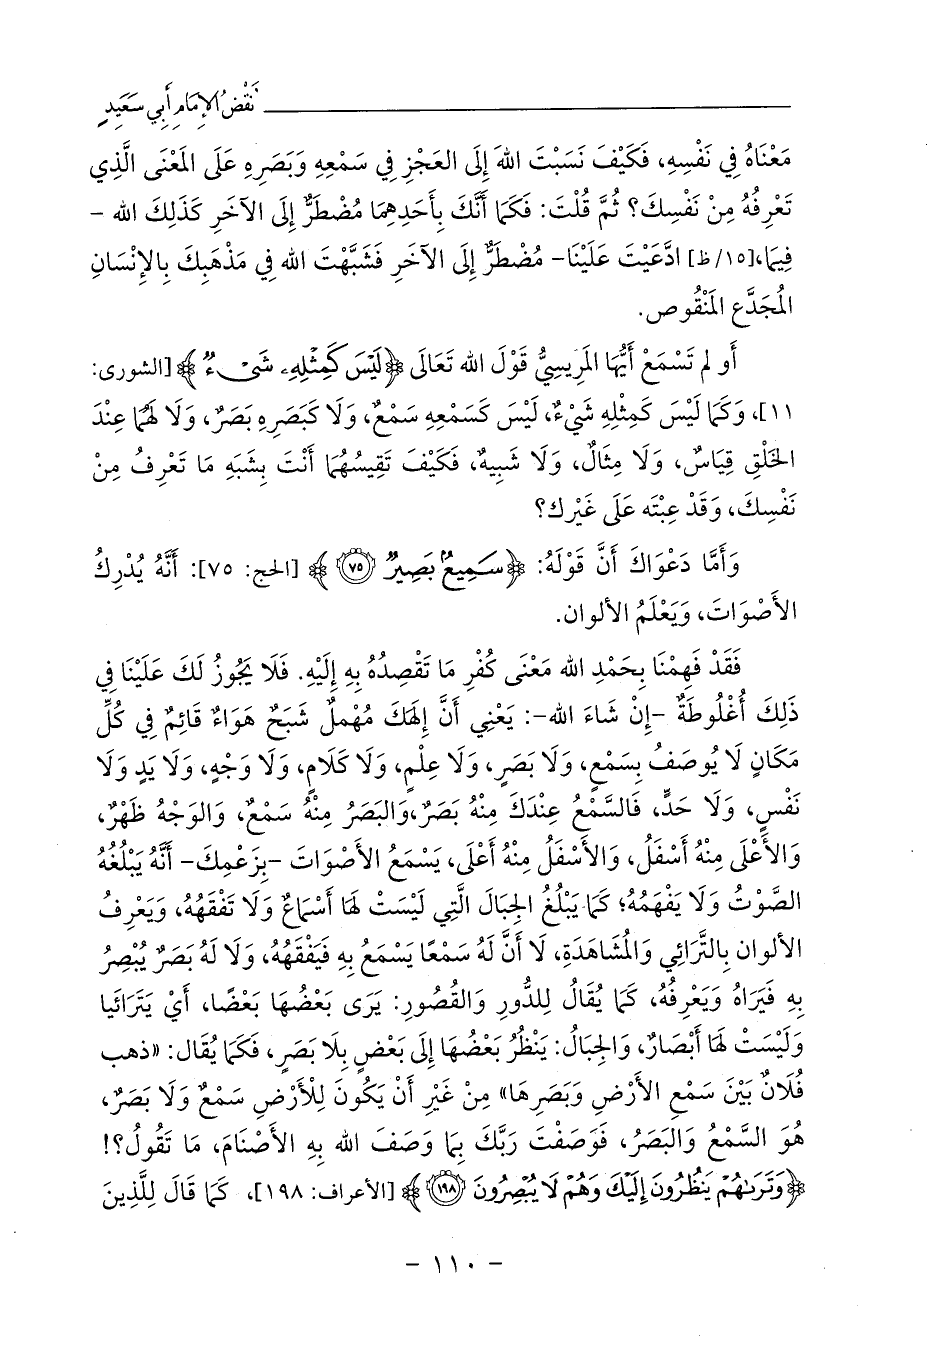 نَقْضُ الإِمَامِ أَبِي سَعِيدٍ
مَعْنَاهُ فِي نَفْسِهِ، فَكَيْفَ نَسَبْتَ اللهَ إِلَى العَجْزِ فِي سَمْعِهِ وَبَصَرِهِ عَلَى المَعْنَى الَّذِي
تَعْرِفُهُ مِنْ نَفْسِكَ؟ ثُمَّ قُلْتَ: فَكَمَا أَنَّكَ بِأَحَدِهِمَا مُضْطَرٌّ إِلَى الآخَرِ كَذَلِكَ الله –
فِيمَا،[١٥/ظ] ادَّعَيْتَ عَلَيْنَا– مُضْطَرٌّ إِلَى الآخَرِ فَشَبَّهْتَ الله فِي مَذْهَبِكَ بِالإِنْسَانِ
المُجَدَّعِ المَنْقُوصِ.
أَو لم تَسْمَعْ أَيُّهَا المَرِيسِيُّ قَوْلَ الله تَعَالَى ﴿لَيْسَ كَمِثْلِهِۦ شَىْءٌ﴾ [الشورى:
١١]، وَكَمَا لَيْسَ كَمِثْلِهِ شَيْءٌ، لَيْسَ كَسَمْعِهِ سَمْعٌ، وَلَا كَبَصَرِهِ بَصَرٌ، وَلَا لَهُمَا عِنْدَ
الخَلْقِ قِيَاسٌ، وَلَا مِثَالٌ، وَلَا شَبِيهٌ، فَكَيْفَ تَقِيسُهُمَا أَنْتَ بِشَبَهِ مَا تَعْرِفُ مِنْ
نَفْسِكَ، وَقَدْ عِبْتَه عَلَى غَيْرِك؟
وَأَمَّا دَعْوَاكَ أَنَّ قَوْلَهُ: ﴿سَمِيعٌ بَصِيرٌ ٧٥﴾ [الحج: ٧٥]: أَنَّهُ يُدْرِكُ
الأَصْوَاتَ، وَيَعْلَمُ الألوان.
فَقَدْ فَهِمْنَا بِحَمْدِ الله مَعْنَى كُفْرِ مَا تَقْصِدُهُ بِهِ إِلَيْهِ. فَلَا يَجُوزُ لَكَ عَلَيْنَا فِي
ذَلِكَ أُغْلُوطَةٌ –إِنْ شَاءَ الله–: يَعْنِي أَنَّ إِلَهَكَ مُهْمَلٌ شَبَحٌ هَوَاءٌ قَائِمٌ فِي كُلِّ
مَكَانٍ لَا يُوصَفُ بِسَمْعٍ، وَلَا بَصَرٍ، وَلَا عِلْمٍ، وَلَا كَلَامٍ، وَلَا وَجْهٍ، وَلَا يَدٍ وَلَا
نَفْسٍ، وَلَا حَدٍّ، فَالسَّمْعُ عِنْدَكَ مِنْهُ بَصَرٌ،وَالبَصَرُ مِنْهُ سَمْعٌ، وَالوَجْهُ ظَهْرٌ،
وَالأَعْلَى مِنْهُ أَسْفَلُ، وَالأَسْفَلُ مِنْهُ أَعْلَى، يَسْمَعُ الأَصْوَاتَ –بِزَعْمِكَ– أَنَّهُ يَبْلُغُهُ
الصَّوْتُ وَلَا يَفْهَمُهُ؛ كَمَا يَبْلُغُ الجِبَالَ الَّتِي لَيْسَتْ لَهَا أَسْمَاعٌ وَلَا تَفْقَهُهُ، وَيَعْرِفُ
الألوان بِالتَّرَائِي وَالمُشَاهَدَةِ، لَا أَنَّ لَهُ سَمْعًا يَسْمَعُ بِهِ فَيَفْقَهُهُ، وَلَا لَهُ بَصَرٌ يُبْصِرُ
بِهِ فَيَرَاهُ وَيَعْرِفُهُ، كَمَا يُقَالُ لِلدُّورِ وَالقُصُورِ: يَرَى بَعْضُهَا بَعْضًا، أَيْ يَتَرَائَيَا
وَلَيْسَتْ لَهَا أَبْصَارٌ، وَالجِبَالُ: يَنْظُرُ بَعْضُهَا إِلَى بَعْضٍ بِلَا بَصَرٍ، فَكَمَا يُقَال: «ذهب
فُلَانٌ بَيْنَ سَمْعِ الأَرْضِ وَبَصَرِهَا» مِنْ غَيْرِ أَنْ يَكُونَ لِلْأَرْضِ سَمْعٌ وَلَا بَصَرٌ،
هُوَ السَّمْعُ وَالبَصَرُ، فَوَصَفْتَ رَبَّكَ بِمَا وَصَفَ الله بِهِ الأَصْنَامَ، مَا تَقُولُ؟!
﴿وَتَرَىٰهُمْ يَنظُرُونَ إِلَيْكَ وَهُمْ لَا يُبْصِرُونَ ١٩٨﴾ [الأعراف: ١٩٨]، كَمَا قَالَ لِلَّذِينَ
– ١١٠ –